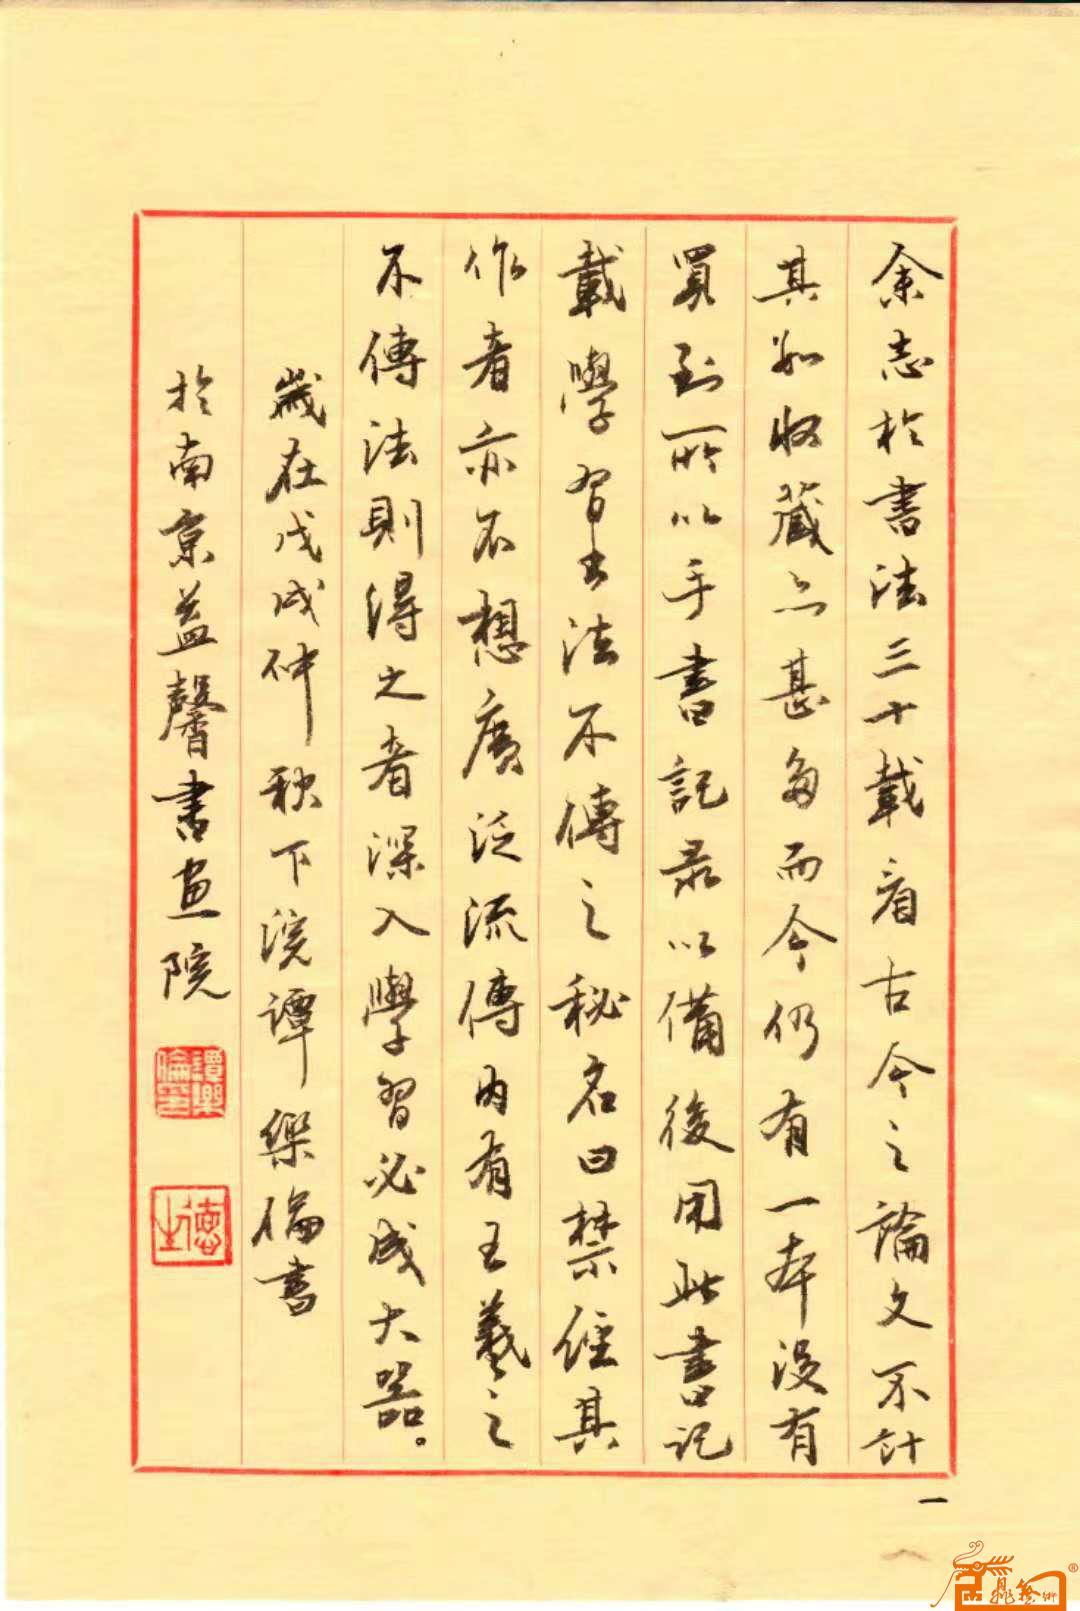 余志於書法三十載看古今之論文不計
其數收藏亦甚多而今仍有一本没有
買到所以手書記录以備後用此書記
載學習書法不傳之秘名曰禁經其
作者亦不想廣泛流傳内有王羲之
不傳法則得之者深入學習必成大器。
歲在戊戌仲秋下浣譚樂倫書
於南京益馨書畫院
譚樂倫印
德生
一